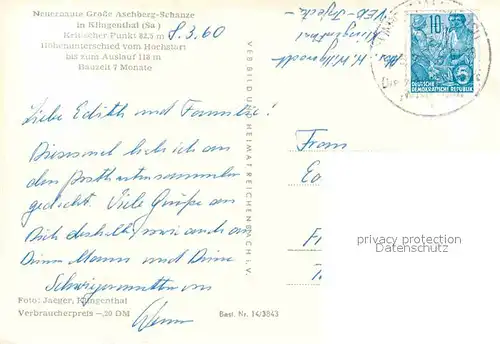 Neuerbaute Große Aschberg-Schanze
in Klingenthal (Sa)
Kritischer Punkt 82,5 m
Höhenunterschied vom Hochstart
bis zum Auslauf 118 m
Bauzeit 7 Monate
8.3.60
Liebe Edith und Familie!
Diesesmal habe ich an
den Postkartensammler
gedacht. Viele Grüße an
Dich deshalb, wie auch an
Deinen Mann und Deine
Schwiegermutter von
Foto: Jaeger, Klingenthal
Verbraucherpreis -,20 DM
Best. Nr. 14/3843
VEB BILD UND HEIMAT REICHENBACH i. V.
Abs.
Klingenthal
10
5
DEUTSCHE
DEMOKRATISCHE REPUBLIK
Frau
privacy protection
watermark